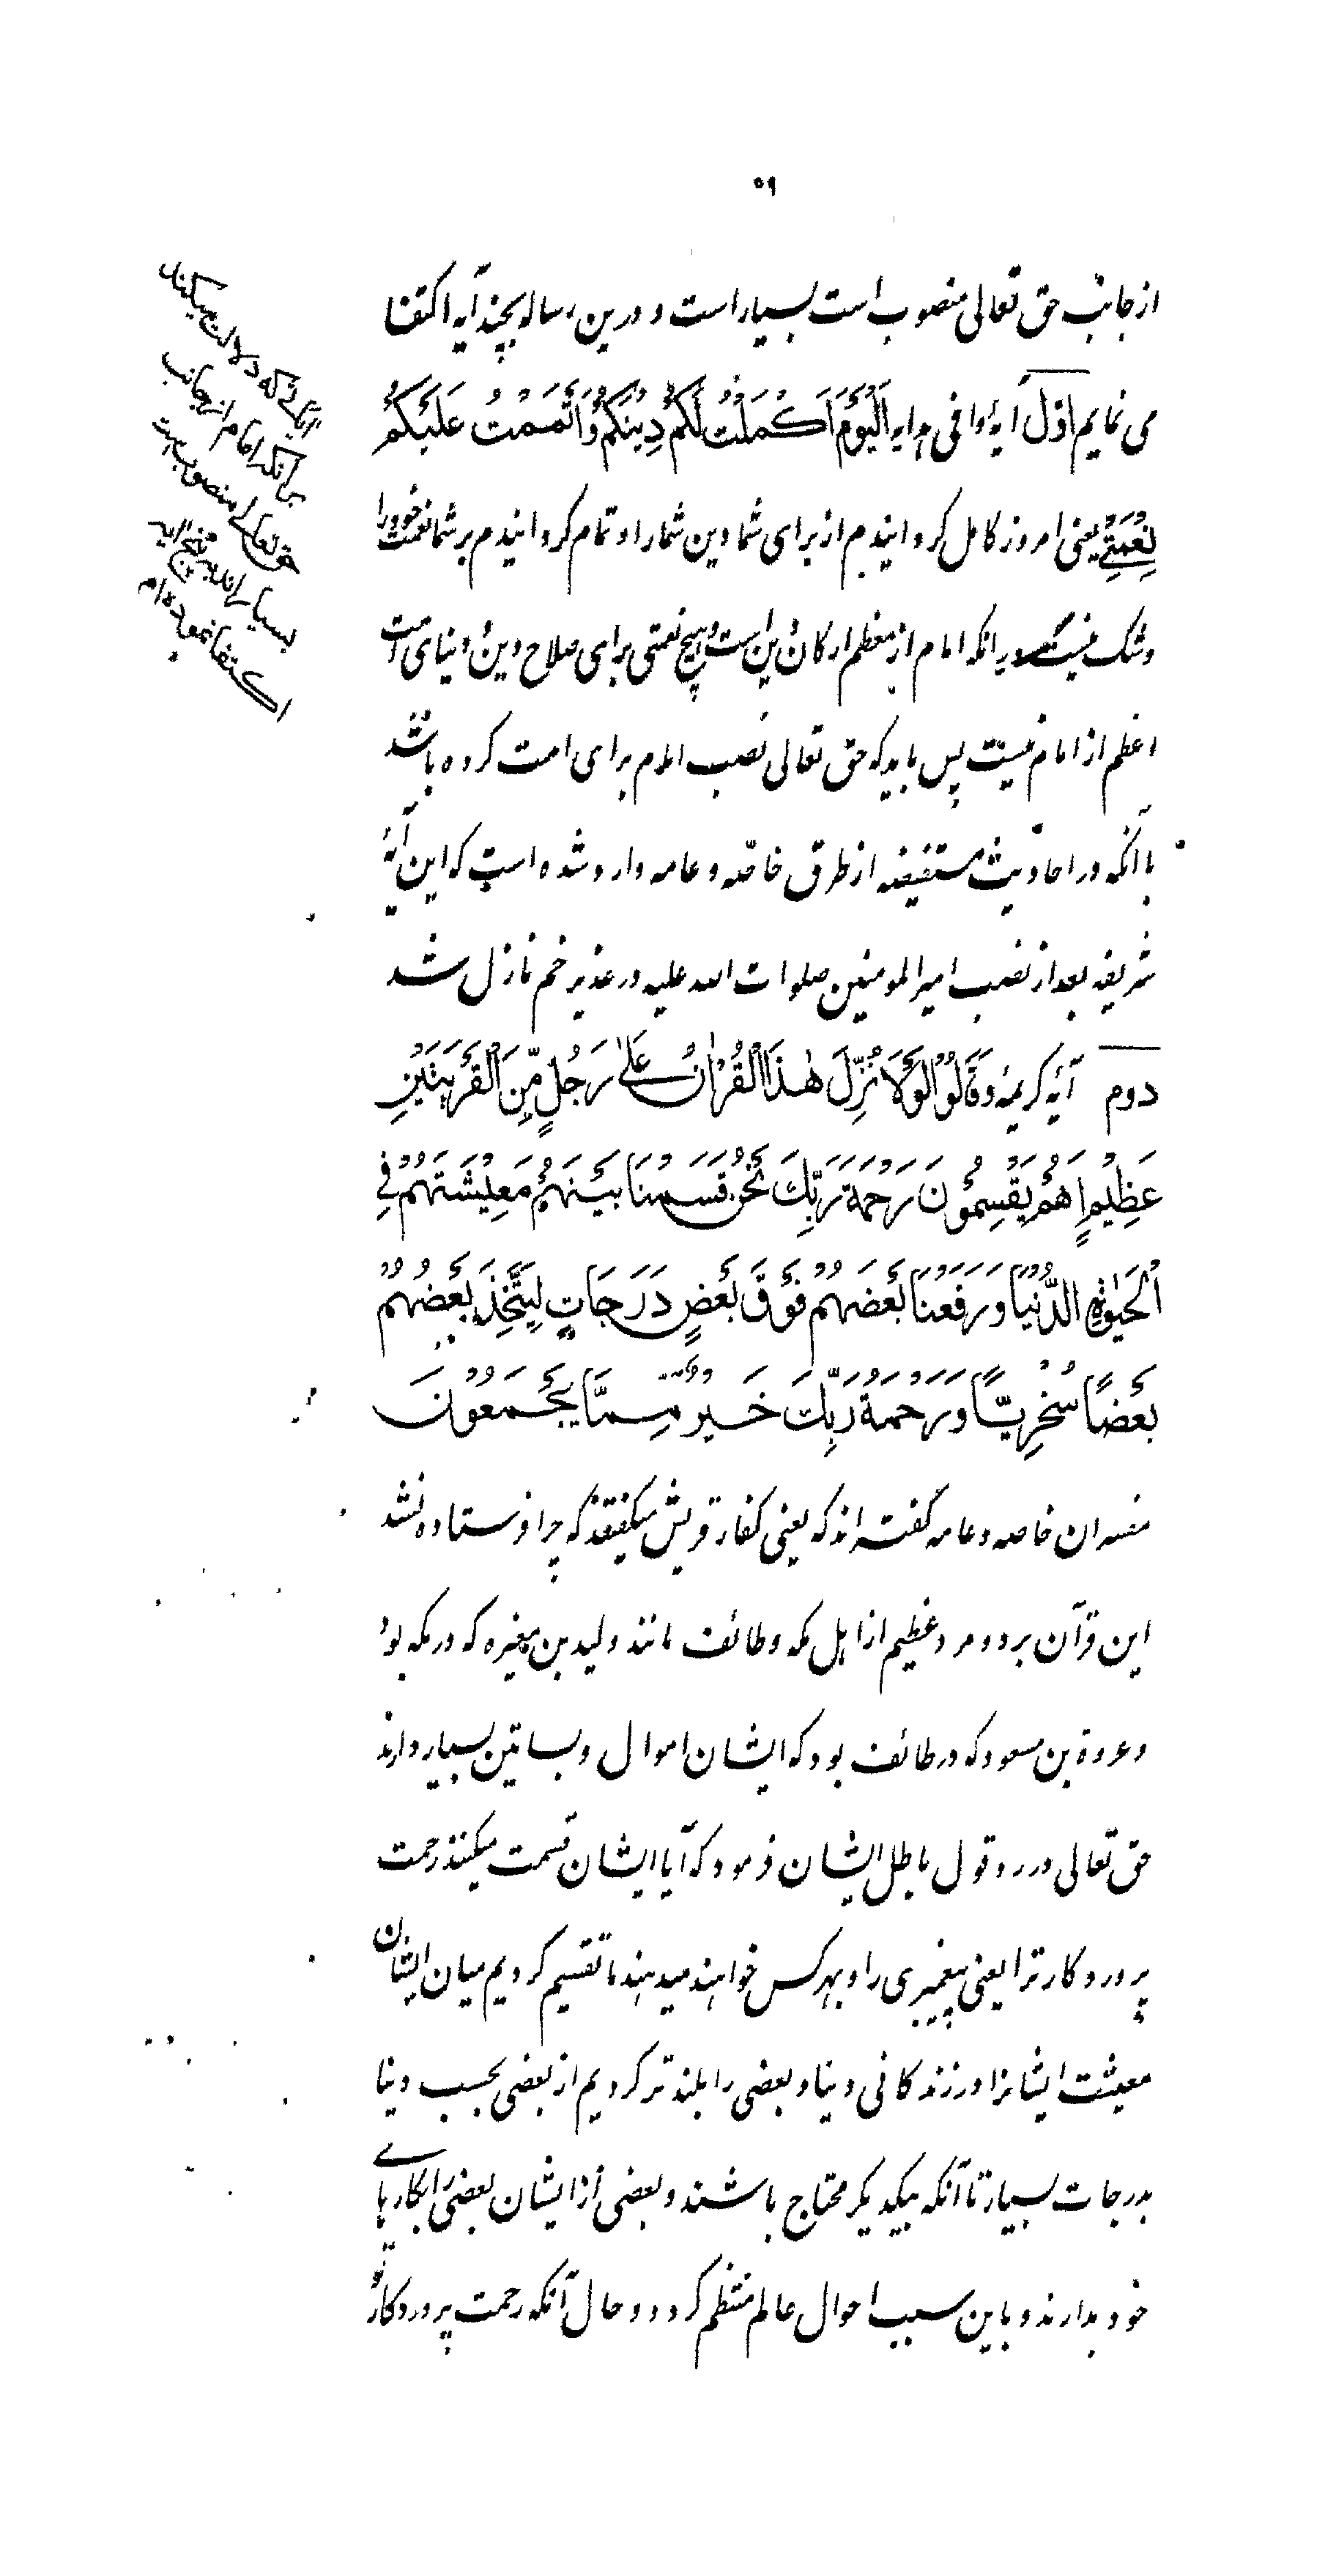 ٥٦
از جانب حق تعالی منصوب است بسیار است و درین رساله بچند آیه اکتفا
می نمایم اوّل آیهٔ وافی هدایه اَلْیَوْمَ اَکْمَلْتُ لَکُمْ دِیْنَکُمْ وَاَتْمَمْتُ عَلَیْکُمْ
نِعْمَتِیْ یعنی امروز کامل کردانیدم از برای شما دین شمارا و تمام کردانیدم بر شما نعمت خود را
و شک نیست در انکه امام از معظم ارکان دین است و هیچ نعمتی برای صلاح دین و دنیای امت
اعظم از امام نیست پس باید که حق تعالی نصب امام برای امت کرده باشد
با آنکه در احادیث مستفیضه از طرق خاصّه و عامه وارد شده است که این آیهٔ
شریفه بعد از نصب امیر المومنین صلوات الله علیه در غدیر خم نازل شد
دوم آیهٔ کریمهٔ وَقَالُوْا لَوْلَا نُزِّلَ هٰذَا الْقُرْاٰنُ عَلٰی رَجُلٍ مِّنَ الْقَرْیَتَیْنِ
عَظِیْمٍ اَهُمْ یَقْسِمُوْنَ رَحْمَةَ رَبِّکَ نَحْنُ قَسَمْنَا بَیْنَهُمْ مَعِیْشَتَهُمْ فِی
الْحَیٰوةِ الدُّنْیَا وَرَفَعْنَا بَعْضَهُمْ فَوْقَ بَعْضٍ دَرَجَاتٍ لِیَتَّخِذَ بَعْضُهُمْ
بَعْضًا سُخْرِیًّا وَرَحْمَةُ رَبِّکَ خَیْرٌ مِّمَّا یَجْمَعُوْنَ
مفسران خاصه و عامه گفته اند که یعنی کفار قریش میکفتند که چرا فرستاده نشد
این قرآن بر دو مرد عظیم از اهل مکه و طائف مانند ولید بن مغیره که در مکه بود
و عروة بن مسعود که در طائف بود که ایشان اموال و بساتین بسیار دارند
حق تعالی در رد قول باطل ایشان فرمود که آیا ایشان قسمت میکنند رحمت
پروردکار ترا یعنی پیغمبری را و بهر کس خواهند میدهند ما تقسیم کردیم میان ایشان
معیشت ایشانرا در زندکانی دنیا و بعضی را بلند تر کردیم از بعضی بحسب دنیا
بدرجات بسیار تا آنکه بیکدیکر محتاج باشند و بعضی از ایشان بعضی را بکارهای
خود بدارند و باین سبب احوال عالم منتظم کردد و حال آنکه رحمت پروردکار تو
آیاتیکه دلالت میکند
بر آنکه امام از جانب
حق تعالی منصوب است
بسیار اند بر پنج آیه
اکتفا نموده ام